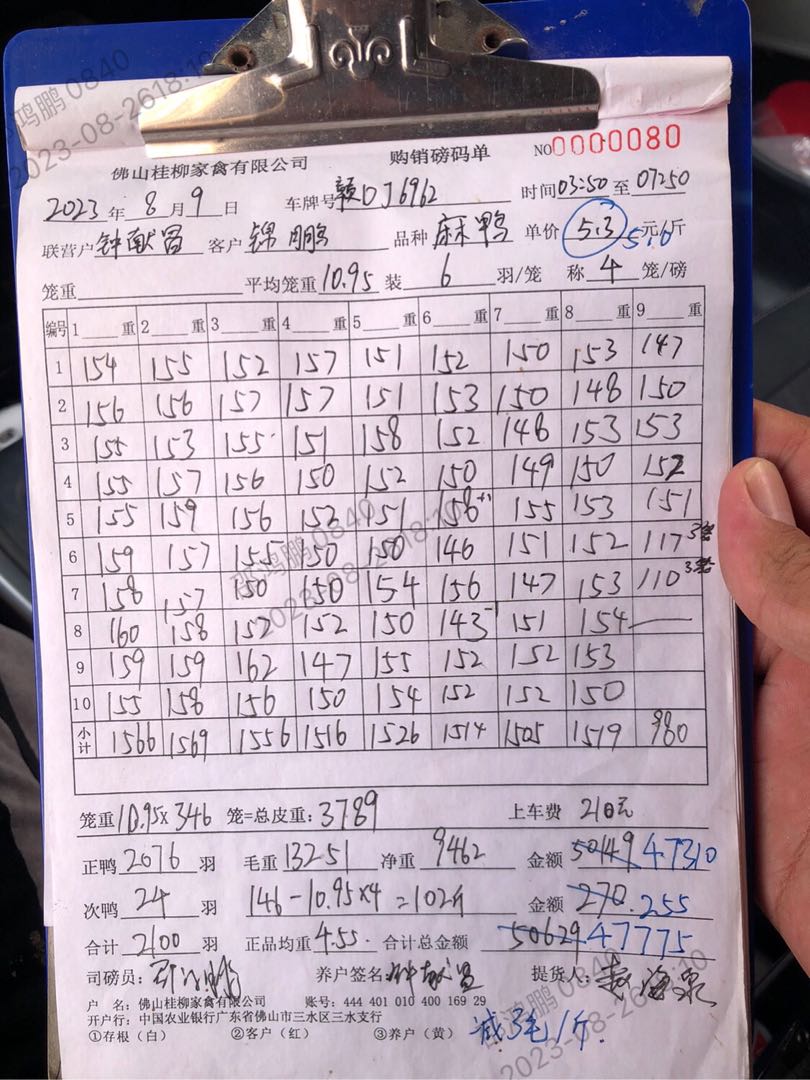 佛山桂柳家禽有限公司 购销磅码单 NO 0000080
2023年 8月 9日 车牌号 赣DJ6962 时间 03:50 至 07250
联营户 钟献昌 客户 锦鹏 品种 麻鸭 单价 5.3 元/斤 5.0
笼重 平均笼重 10.95 装 6 羽/笼 称 4 笼/磅
编号 1 重 2 重 3 重 4 重 5 重 6 重 7 重 8 重 9 重
1 154 155 152 157 151 152 150 153 147
2 156 156 157 157 151 153 150 148 150
3 155 153 155 151 158 152 146 153 153
4 155 157 156 150 152 150 149 150 152
5 155 159 156 153 151 158 +1 155 153 151
6 159 157 155 150 150 146 151 152 117 3笼
7 158 157 150 150 154 156 147 153 110 3笼
8 160 158 152 152 150 143 151 154 —
9 159 159 162 147 155 152 152 153
10 155 158 156 150 154 152 152 150
小计 1566 1569 1556 1516 1526 1514 1505 1519 980
笼重 10.95×346 笼=总皮重: 3789 上车费 210元
正鸭 2076 羽 毛重 13251 净重 9462 金额 50149 47310
次鸭 24 羽 146-10.95×4=102斤 金额 270 255
合计 2100 羽 正品均重 4.55 合计总金额 50629 47775
司磅员: 养户签名: 钟献昌 提货人:
户 名: 佛山桂柳家禽有限公司 账号: 444 401 010 400 169 29
开户行: 中国农业银行广东省佛山市三水区三水支行
①存根(白) ②客户(红) ③养户(黄) 减3毛1斤.
鸿鹏 0840
2023-08-26 18:10